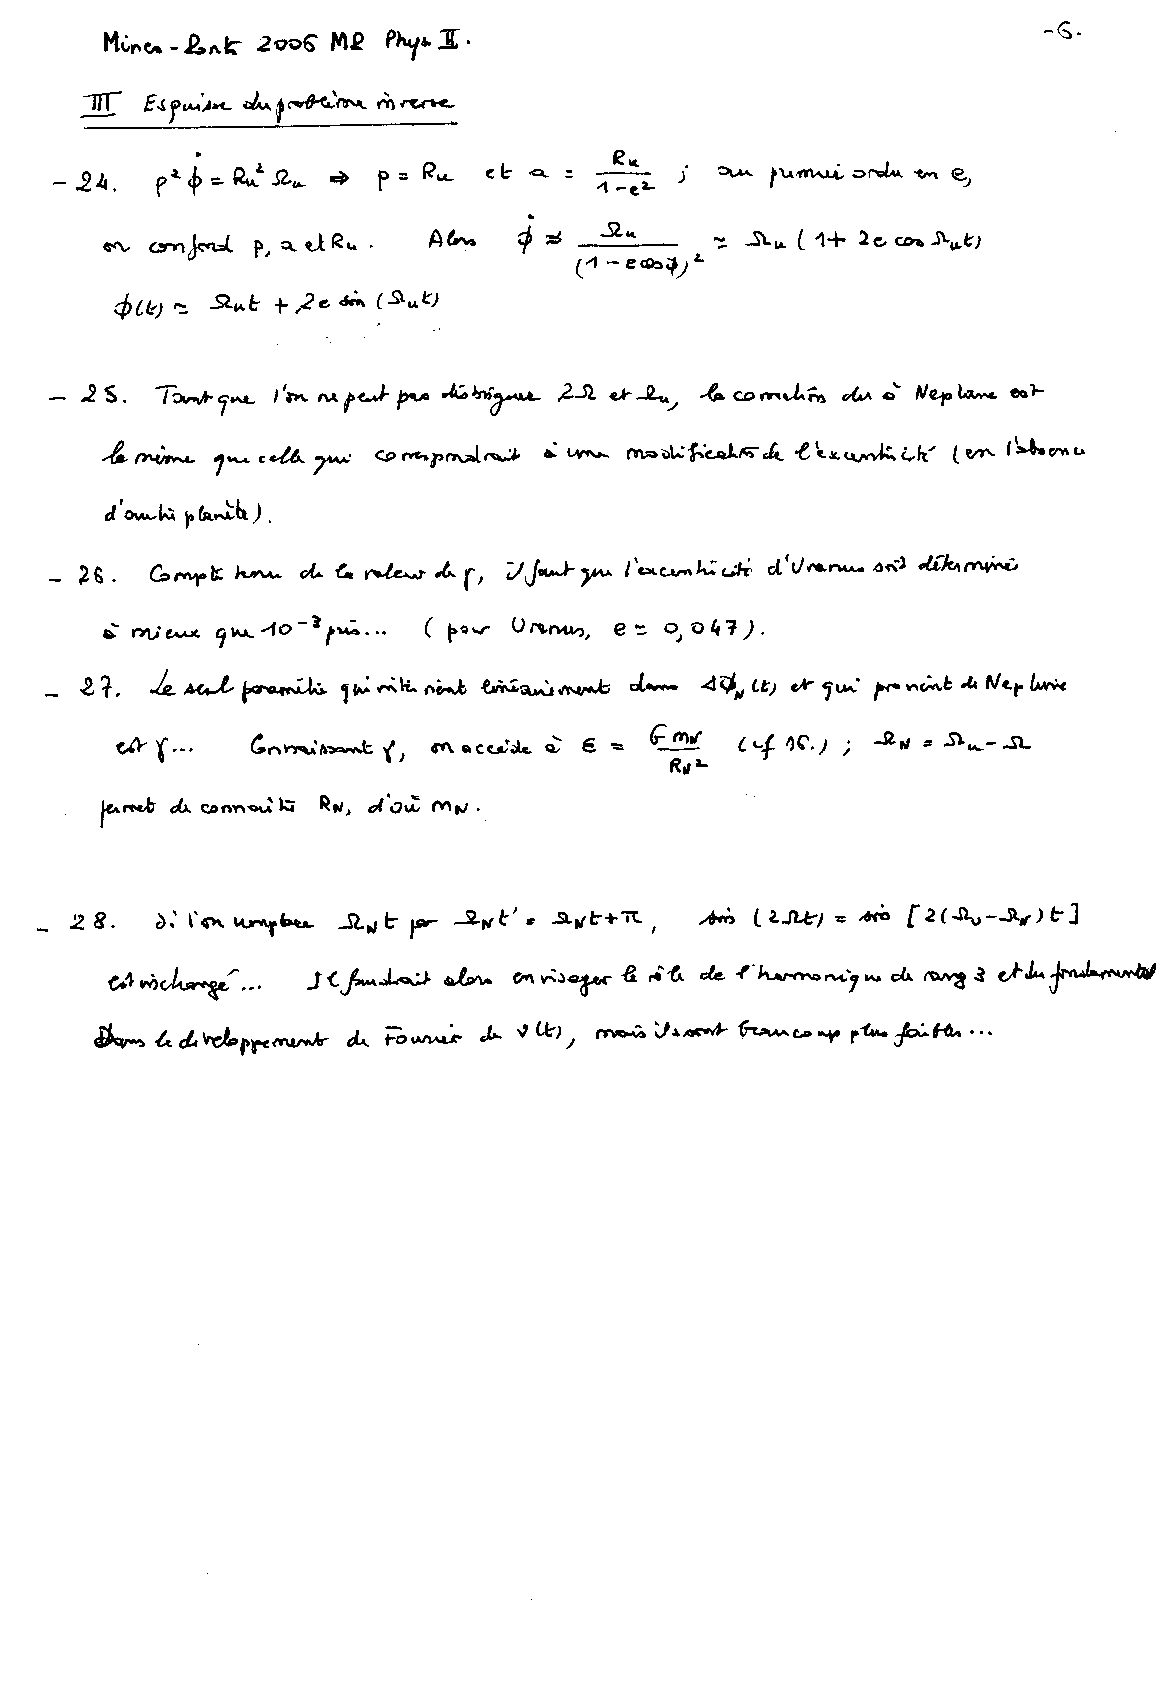 Mines-Ponts 2006 MP Phys II.
-6.
III Esquisse du problème inverse
- 24. ρ² φ̇ = Ru² Ωu ⇒ p = Ru et a = Ru / (1-e²) ; au premier ordre en e,
on confond p, a et Ru. Alors φ̇ ≈ Ωu / (1-e cos φ)² ≃ Ωu (1+ 2e cos Ωut)
φ(t) ≃ Ωut + 2e sin (Ωut)
- 25. Tant que l'on ne peut pas distinguer 2Ω et Ωu, la correction due à Neptune est
la même que celle qui correspondrait à une modification de l'excentricité (en l'absence
d'autre planète).
- 26. Compte tenu de la valeur de γ, il faut que l'excentricité d'Uranus soit déterminée
à mieux que 10⁻³ près... (pour Uranus, e = 0,047).
- 27. Le seul paramètre qui intervient linéairement dans ΔΦN(t) et qui provient de Neptune
est γ... Connaissant γ, on accède à ε = G mN / RN² (cf 16.) ; ΩN = Ωu - Ω
permet de connaître RN, d'où mN.
- 28. Si l'on remplace ΩNt par ΩNt' = ΩNt + π, sin (2Ωt) = sin [2(ΩU-ΩN)t]
est inchangé... Il faudrait alors envisager le rôle de l'harmonique de rang 3 et du fondamental
Dans le développement de Fourier de v(t), mais ils sont beaucoup plus faibles...